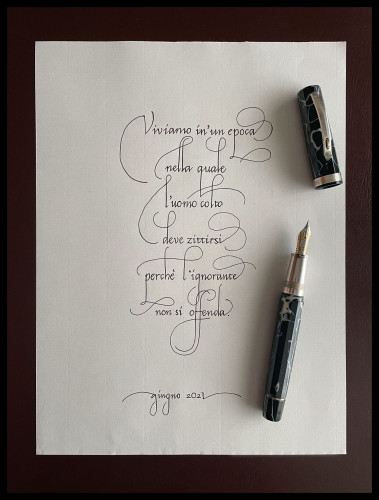 Viviamo in'un epoca
nella quale
l'uomo colto
deve zittirsi
perché l'ignorante
non si offenda.
giugno 2021